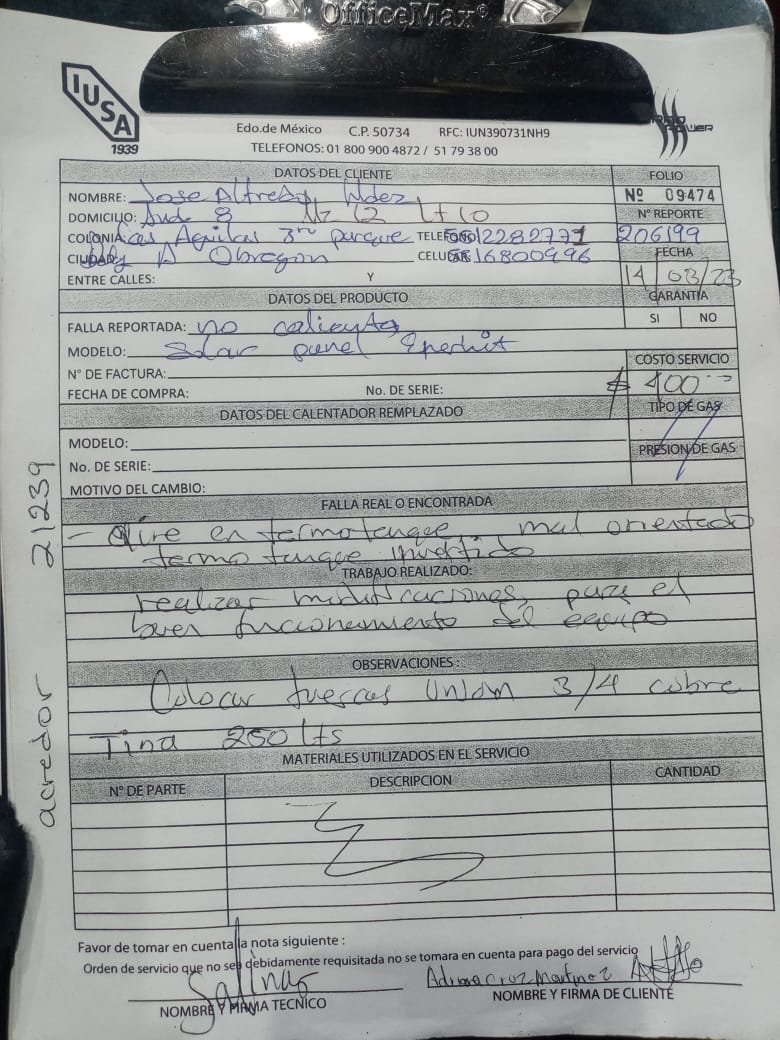 OfficeMax®
IUSA
1939
POWER
Edo.de México C.P. 50734 RFC: IUN390731NH9
TELEFONOS: 01 800 900 4872 / 51 79 38 00
DATOS DEL CLIENTE
FOLIO
NOMBRE: Jose Alfredo
Nº 09474
DOMICILIO: And 8 Mz 12 Lt 10
Nº REPORTE
COLONIA: Las Aguilas 3er parque TELEFONO
206199
CIUDAD: Obregon CELULAR 16800996
FECHA
14 / 03/23
ENTRE CALLES: Y
DATOS DEL PRODUCTO
GARANTIA
FALLA REPORTADA: no calienta
SI NO
MODELO: Solar panel
COSTO SERVICIO
N° DE FACTURA:
$ 400
FECHA DE COMPRA: No. DE SERIE:
DATOS DEL CALENTADOR REMPLAZADO
TIPO DE GAS
MODELO:
PRESION DE GAS
No. DE SERIE:
MOTIVO DEL CAMBIO:
FALLA REAL O ENCONTRADA
- Aire en termotanque, mal orientado
termo tanque invertido
TRABAJO REALIZADO:
realizar modificaciones, para el
buen funcionamiento del equipo
OBSERVACIONES :
Colocar tuercas Union 3/4 cobre
Tina 250 lts
MATERIALES UTILIZADOS EN EL SERVICIO
N° DE PARTE DESCRIPCION CANTIDAD
Favor de tomar en cuenta la nota siguiente :
Orden de servicio que no sea debidamente requisitada no se tomara en cuenta para pago del servicio
Salinas
Adriana Cruz Martinez
NOMBRE Y FIRMA TECNICO
NOMBRE Y FIRMA DE CLIENTE
acredor 21239